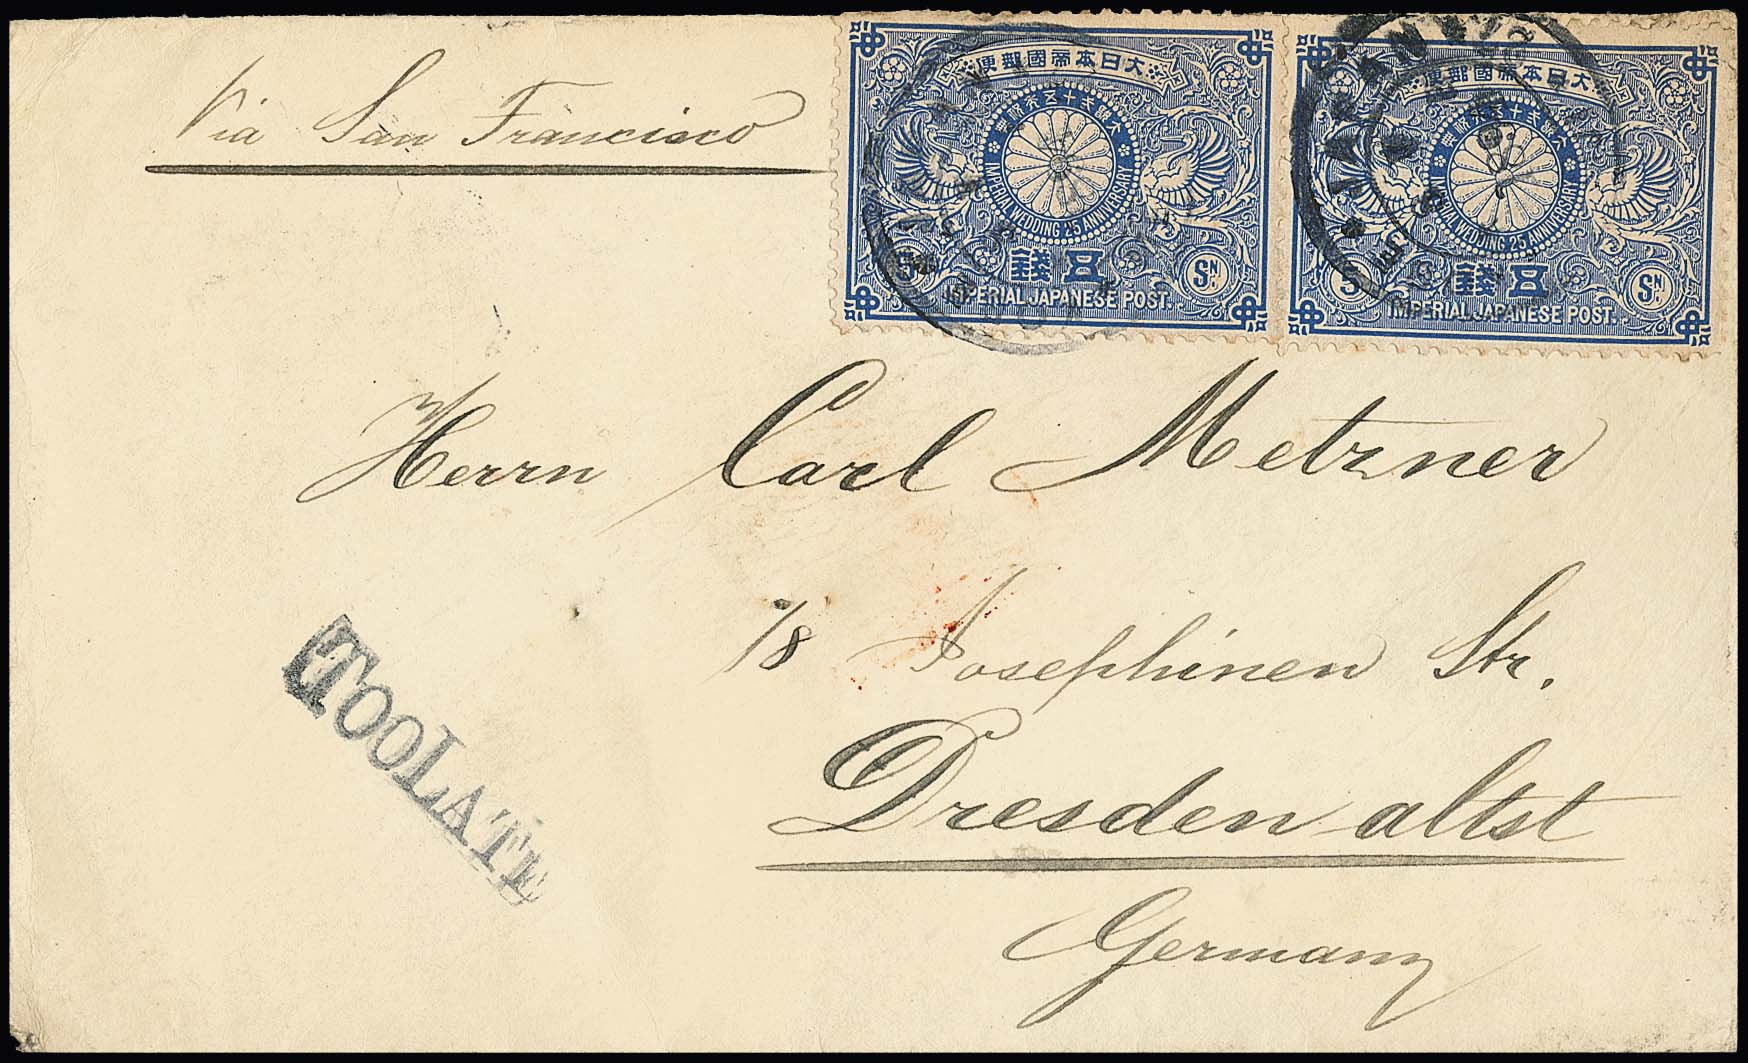 Via San Francisco
大日本帝國郵便
大婚貳十五年祝典
IMPERIAL WEDDING 25 ANNIVERSARY
5 五錢 SN
IMPERIAL JAPANESE POST.
大日本帝國郵便
大婚貳十五年祝典
IMPERIAL WEDDING 25 ANNIVERSARY
5 五錢 SN
IMPERIAL JAPANESE POST.
JAPAN
Herrn Carl Metzner
18 Josephinen Str.
Dresden altst
Germany
TOO LATE